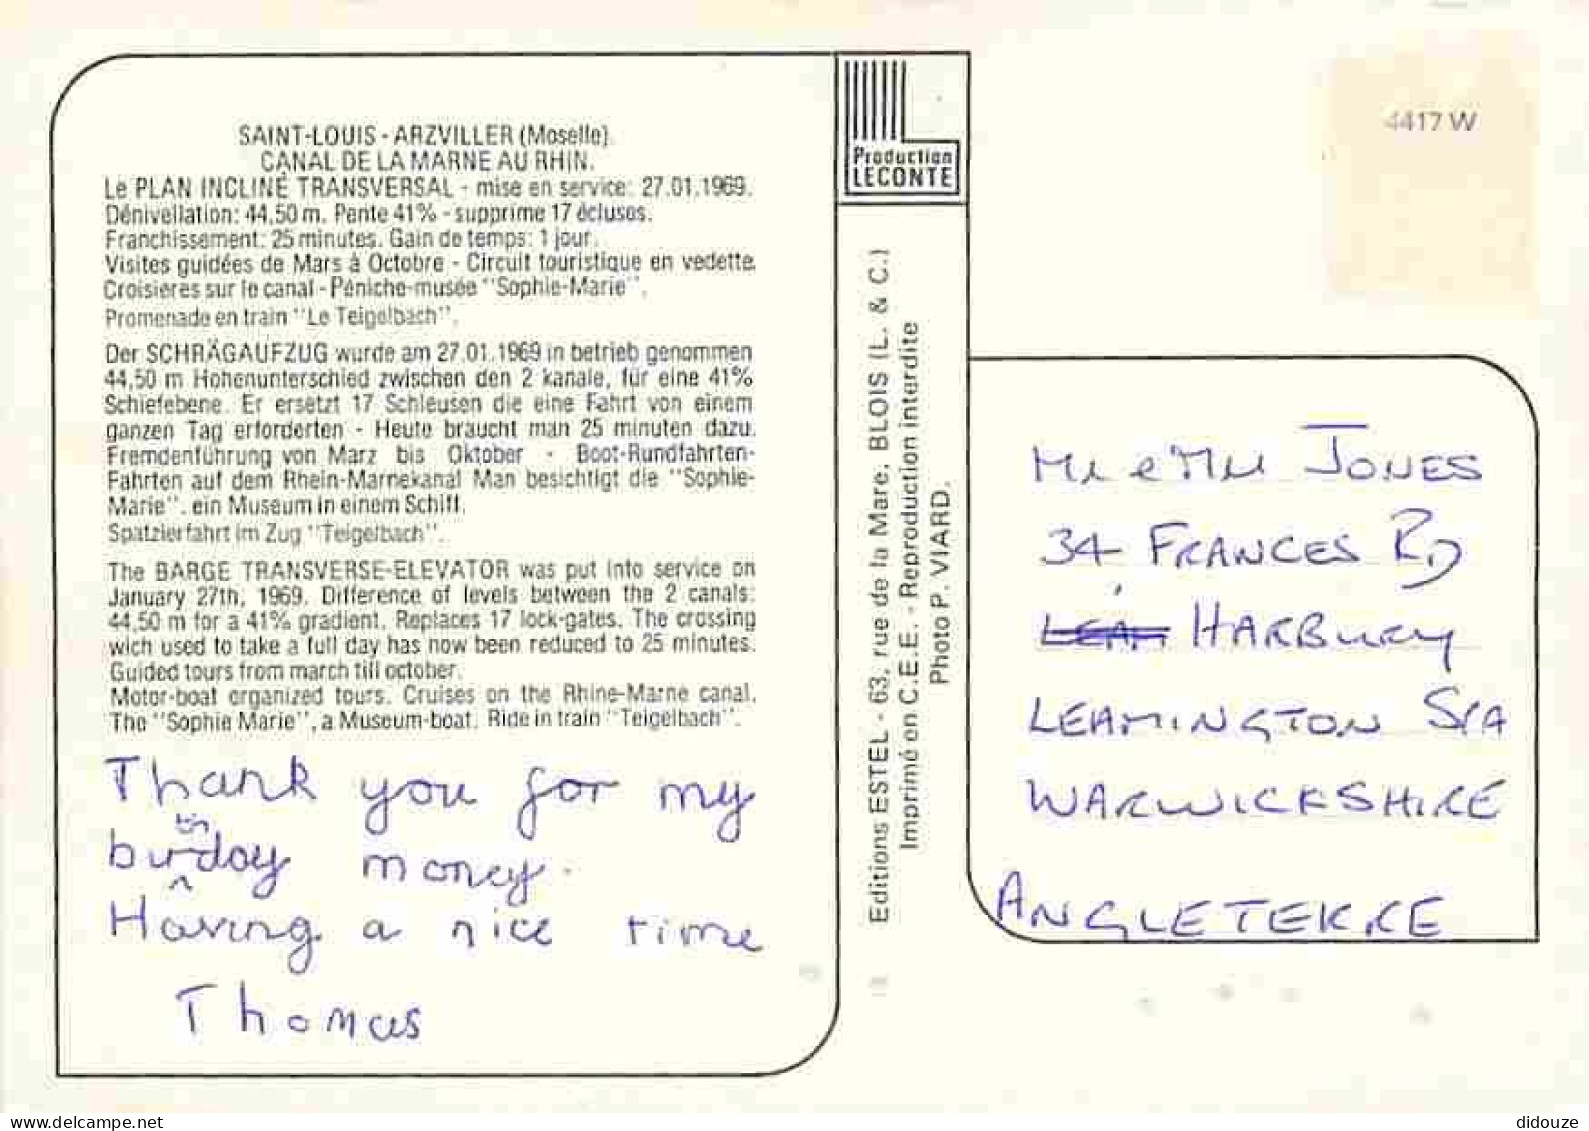 SAINT-LOUIS - ARZVILLER (Moselle).
CANAL DE LA MARNE AU RHIN.
Le PLAN INCLINÉ TRANSVERSAL - mise en service: 27.01.1969.
Dénivellation: 44,50 m. Pente 41% - supprime 17 écluses.
Franchissement: 25 minutes. Gain de temps: 1 jour.
Visites guidées de Mars à Octobre - Circuit touristique en vedette.
Croisieres sur le canal - Péniche-musée "Sophie-Marie".
Promenade en train "Le Teigelbach".
Der SCHRÄGAUFZUG wurde am 27.01.1969 in betrieb genommen
44,50 m Hohenunterschied zwischen den 2 kanale, für eine 41%
Schiefebene. Er ersetzt 17 Schleusen die eine Fahrt von einem
ganzen Tag erforderten - Heute braucht man 25 minuten dazu.
Fremdenführung von Marz bis Oktober - Boot-Rundfahrten-
Fahrten auf dem Rhein-Marnekanal Man besichtigt die "Sophie-
Marie". ein Museum in einem Schiff.
Spatzierfahrt im Zug "Teigelbach".
The BARGE TRANSVERSE-ELEVATOR was put into service on
January 27th, 1969. Difference of levels between the 2 canals:
44,50 m for a 41% gradient. Replaces 17 lock-gates. The crossing
wich used to take a full day has now been reduced to 25 minutes.
Guided tours from march till october.
Motor-boat organized tours. Cruises on the Rhine-Marne canal.
The "Sophie Marie", a Museum-boat. Ride in train "Teigelbach".
Thank you for my
birthday money.
Having a nice time
Thomas
Production
LECONTE
Editions ESTEL - 63, rue de la Mare. BLOIS (L. & C.)
Imprimé en C.E.E. - Reproduction interdite
Photo P. VIARD.
4417 W
Mr e Mrs JONES
34 FRANCES RD
LEAM HARBURY
LEAMINGTON SPA
WARWICKSHIRE
ANGLETERRE
didouze